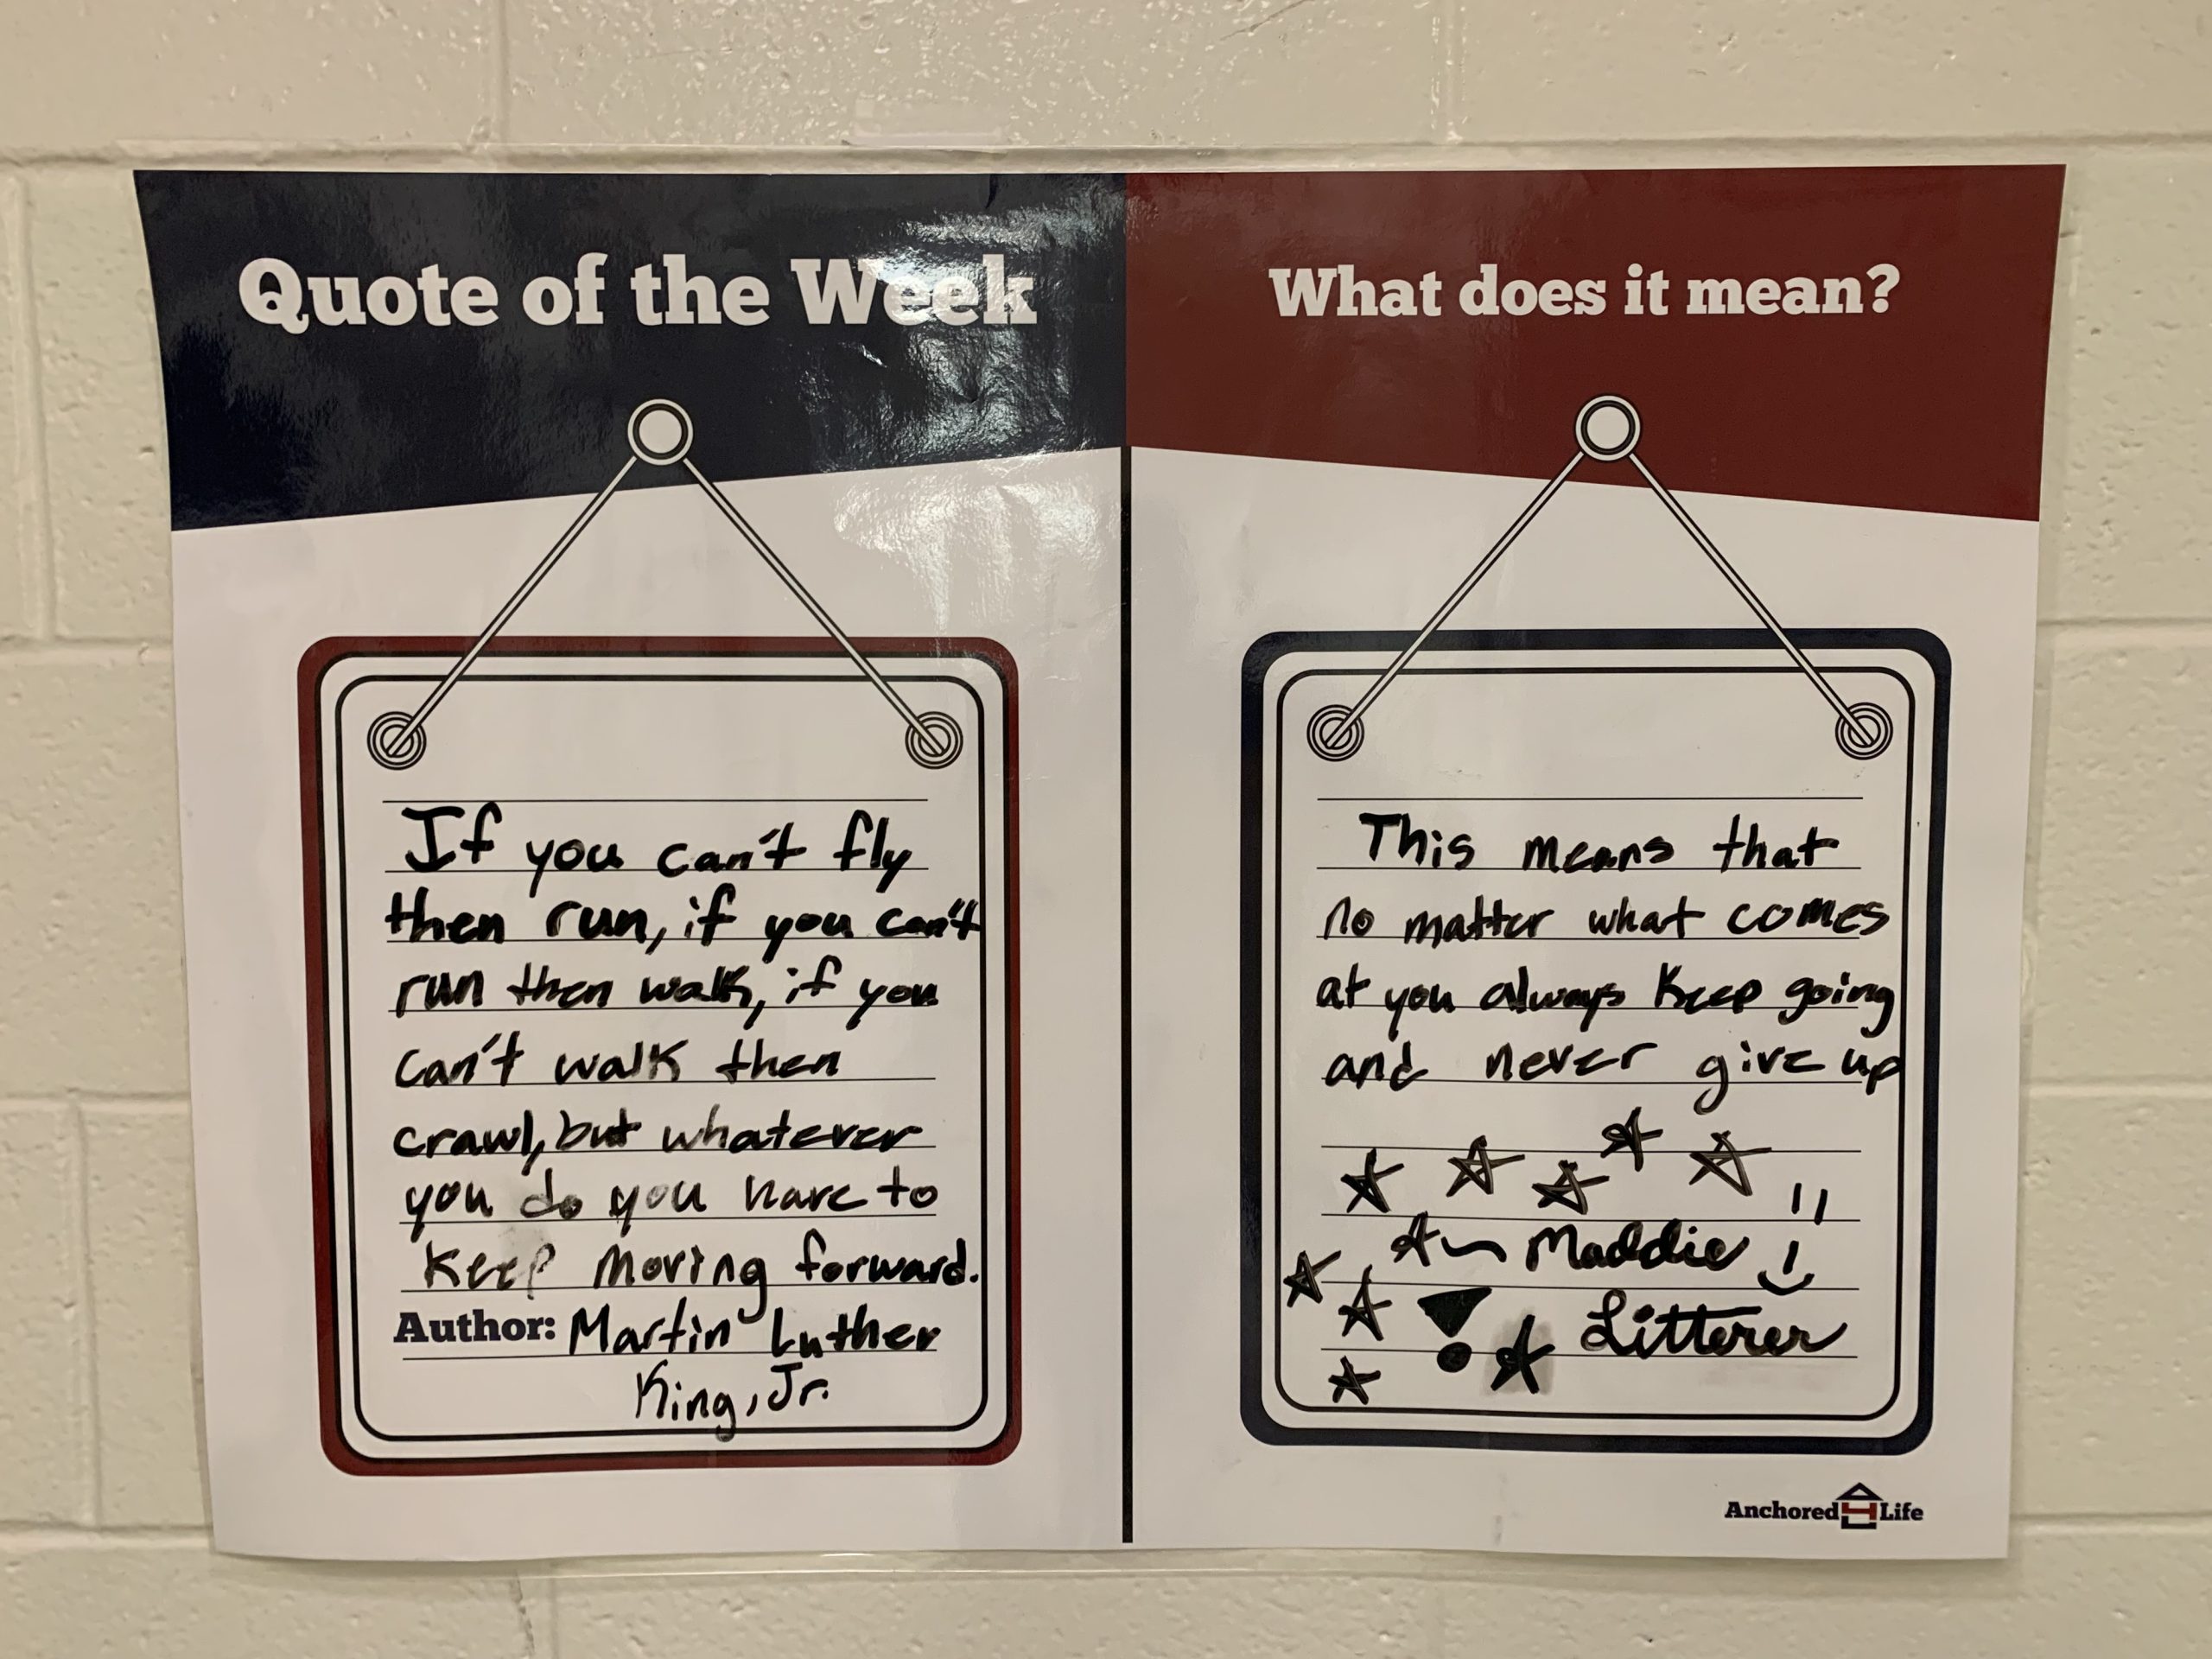 Quote of the Week
If you can't fly
then run, if you can't
run then walk, if you
can't walk then
crawl, but whatever
you do you have to
keep moving forward.
Author: Martin Luther
King, Jr.
What does it mean?
This means that
no matter what comes
at you always keep going
and never give up
~ Maddie
Litterer
Anchored4Life